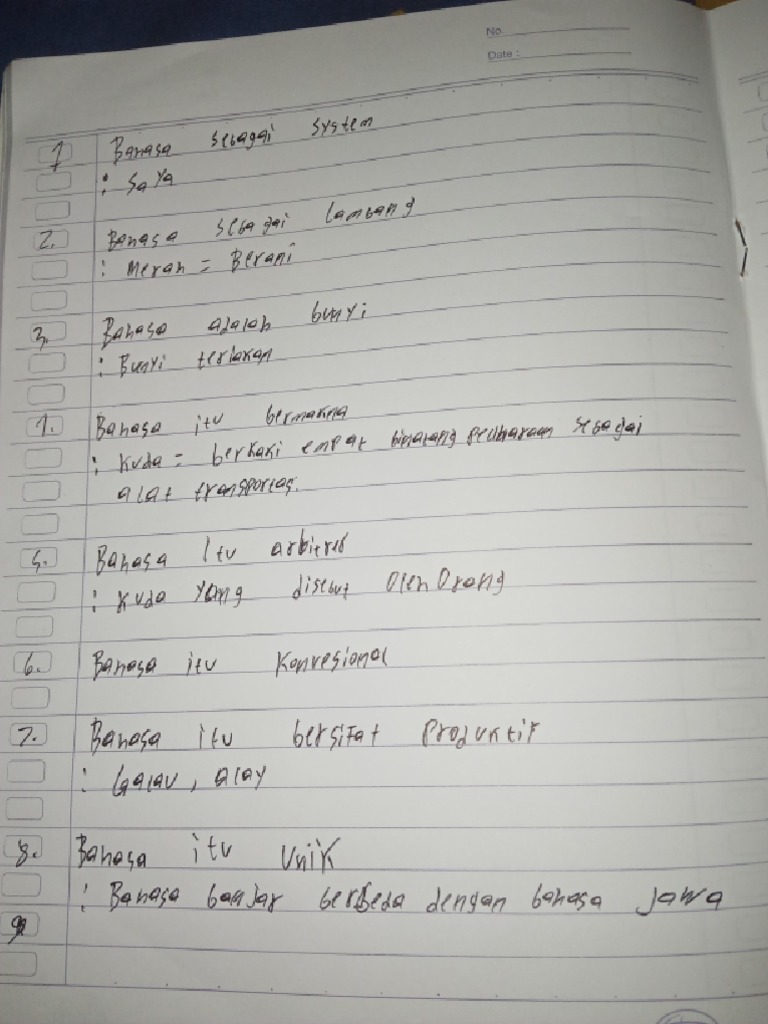 No.
Date :
1 Bahasa sebagai system
: Saya
2. Bahasa sebagai lambang
: Merah = Berani
3. Bahasa adalah bunyi
: Bunyi terlakan
4. Bahasa itu bermakna
: Kuda = berkaki empat binatang peliharaan sebagai
alat transportas.
5. Bahasa Itu arbitrer
: Kuda yang disebut Oleh Orang
6. Bahasa itu Konvesional
7. Bahasa itu bersifat Produktif
: Galau, alay
8. Bahasa itu Unik
: Bahasa banjar berbeda dengan bahasa jawa
9